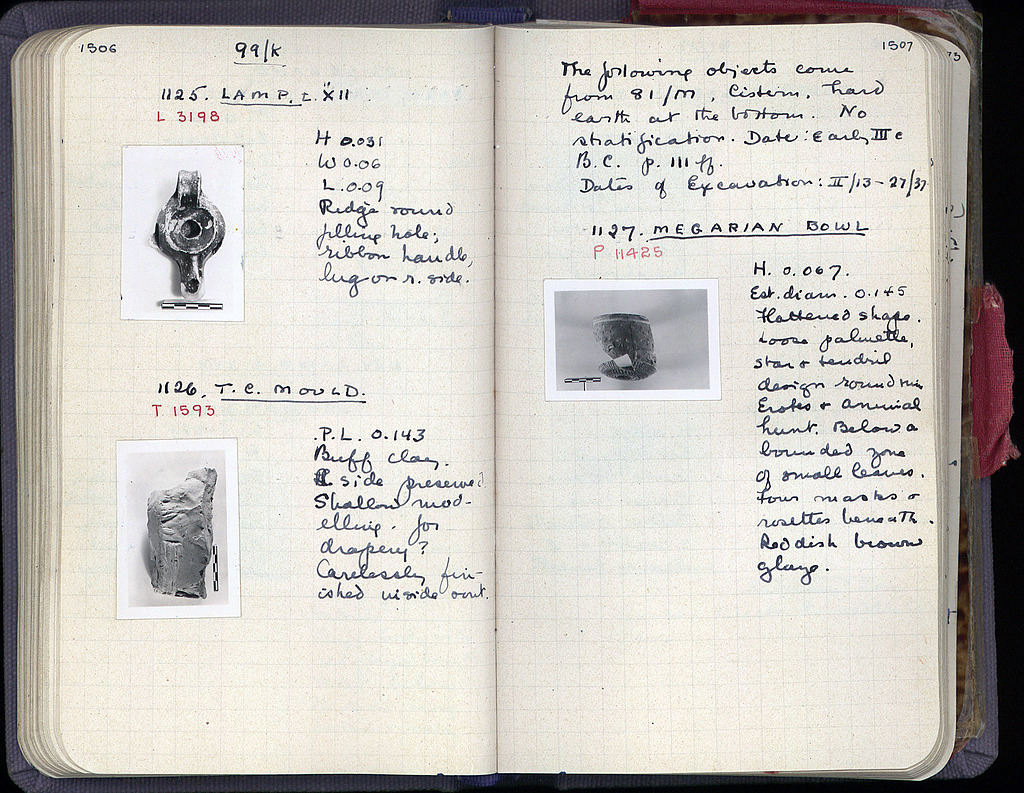 1506
99/K
1125. LAMP. T. XII
L 3198
H 0.031
W 0.06
L. 0.09
Ridge round
filling hole;
ribbon handle,
lug on r. side.
1126. T. C. MOULD.
T 1593
P. L. 0.143
Buff clay.
side preserved.
Shallow mod-
elling. for
drapery?
Carelessly fin-
ished inside & out.
1507
The following objects come
from 81/M, Cistern, hard
earth at the bottom. No
stratification. Date: Early III c
B.C. p. 111 ff.
Dates of Excavation: II/13-27/37
1127. MEGARIAN BOWL
P 11425
H. 0.067.
Est. diam. 0.145
Flattened shape.
Loose palmette,
star & tendril
design round rim
Erotes & animal
hunt. Below a
bounded zone
of small leaves.
Four masks &
rosettes beneath.
Reddish brown
glaze.
73